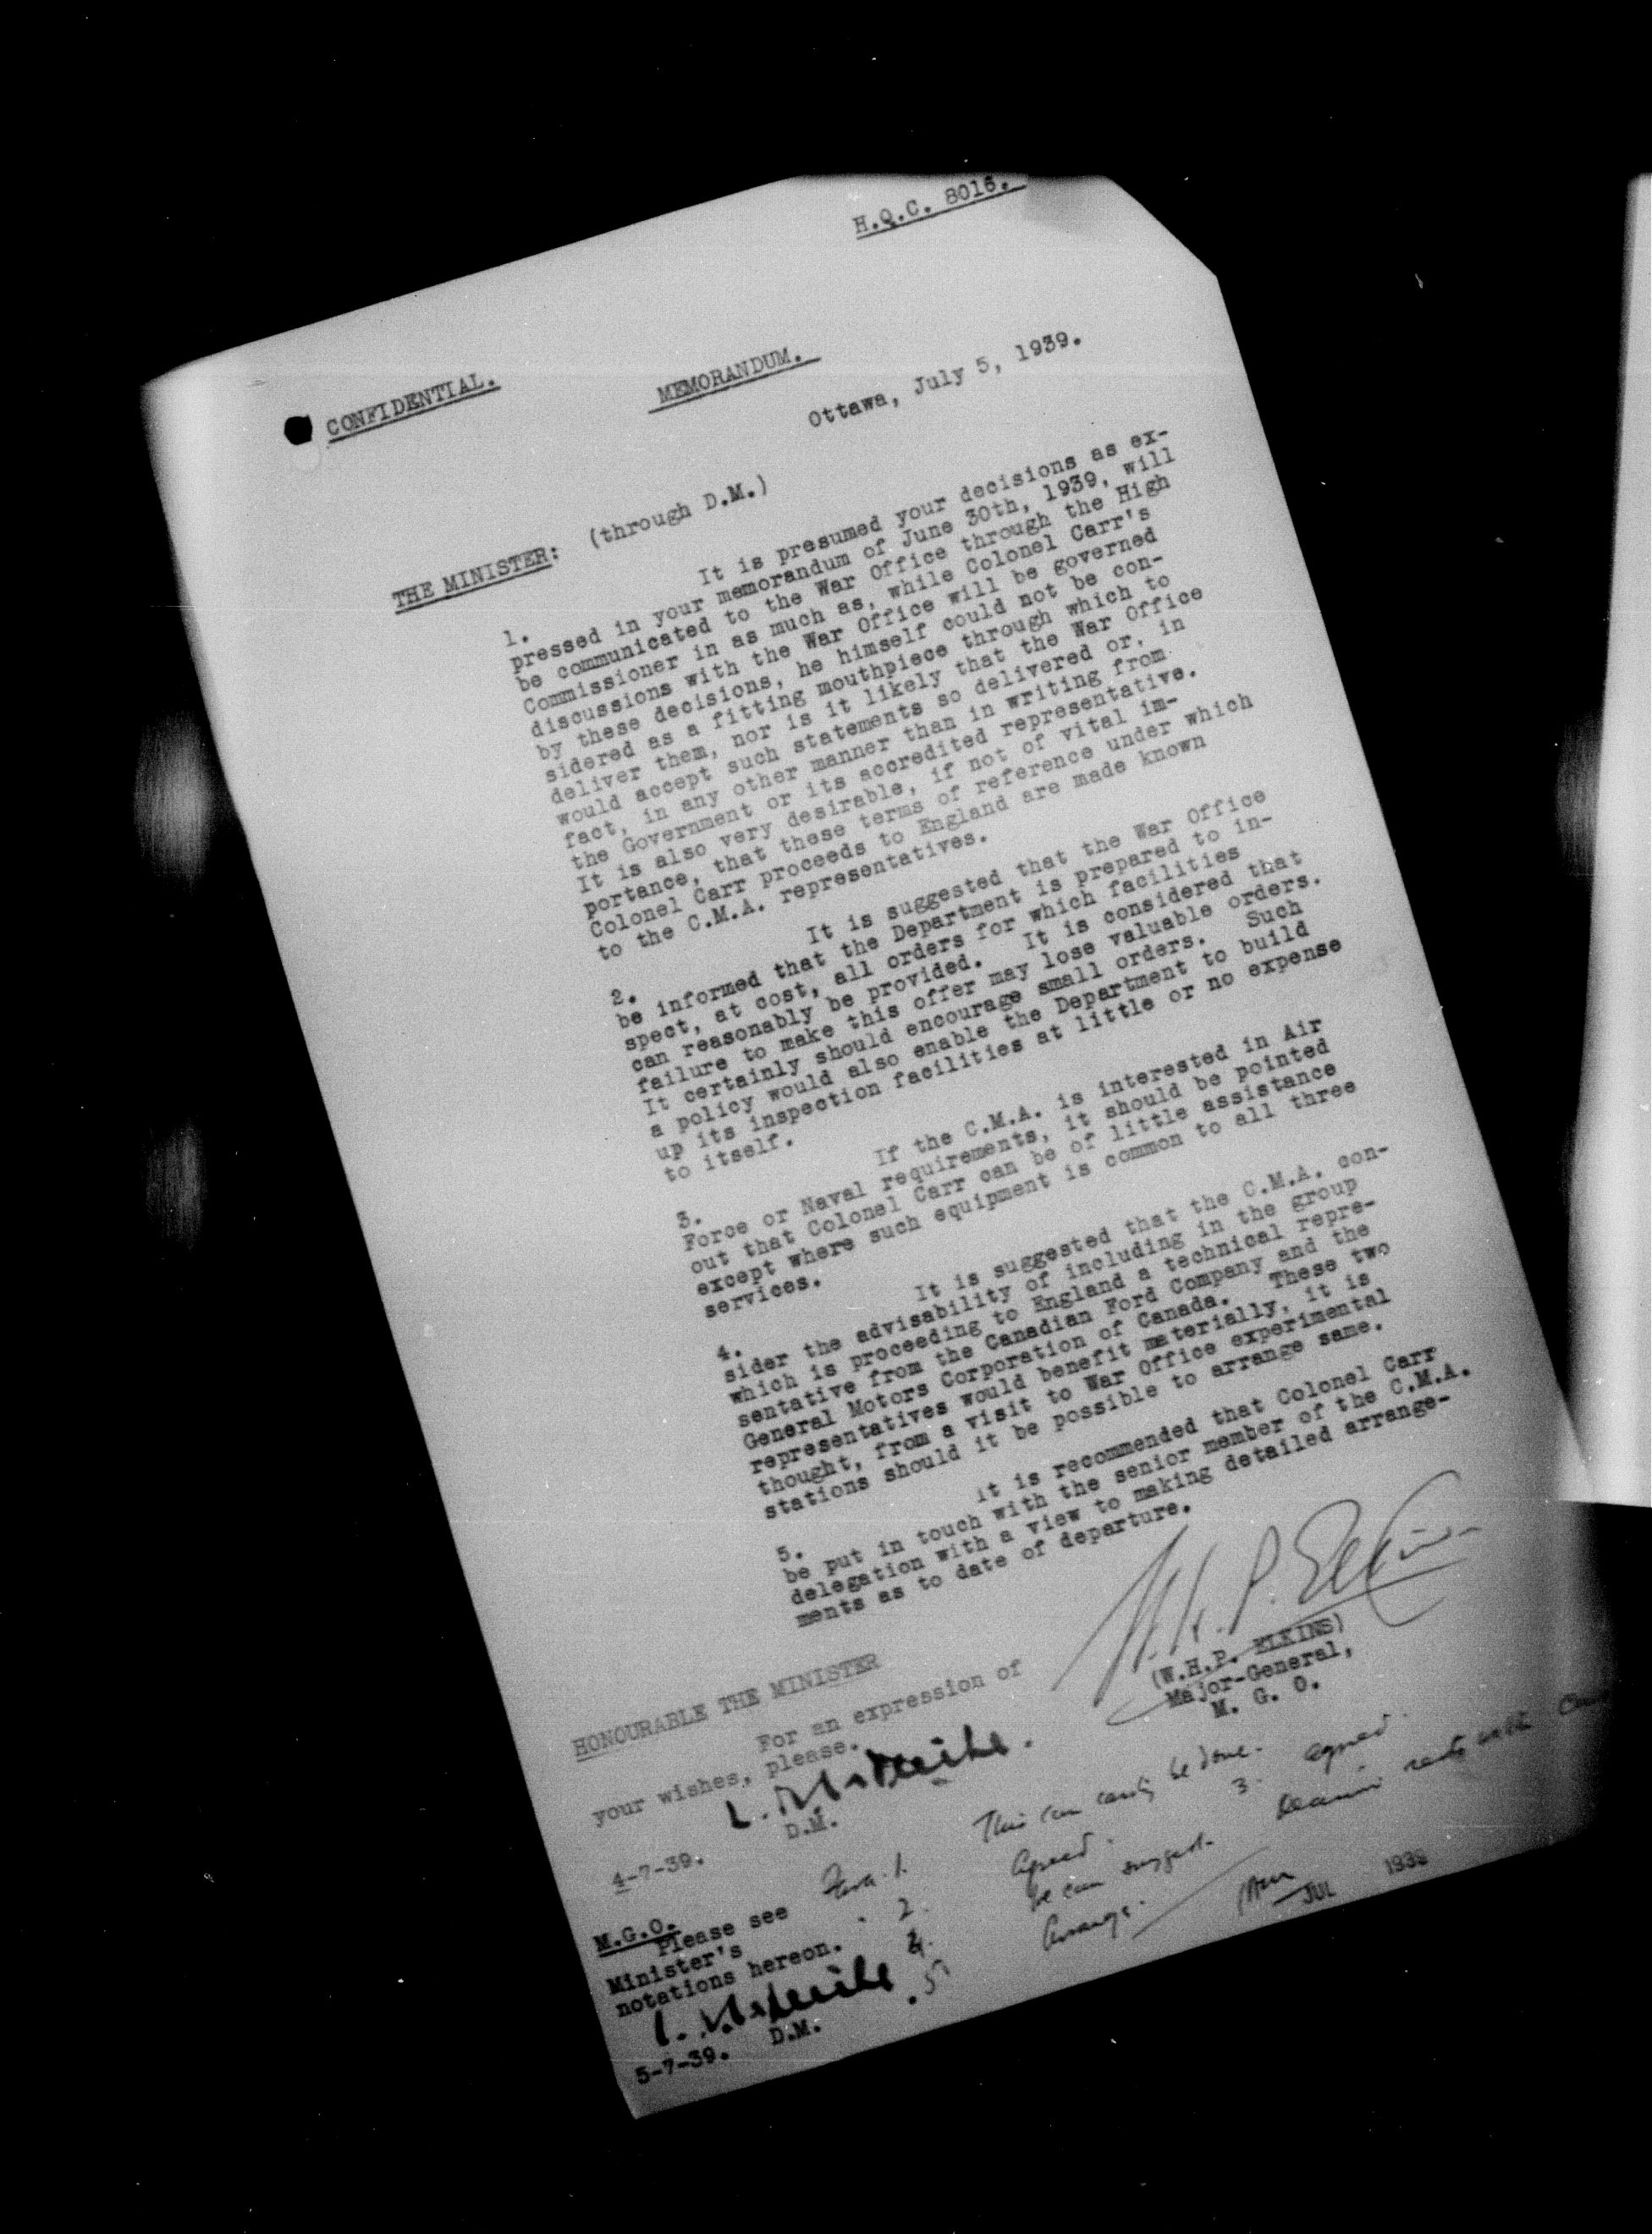 H.Q.C. 8016.
CONFIDENTIAL.
MEMORANDUM.
Ottawa, July 5, 1939.
(through D.M.)
THE MINISTER:
1. It is presumed your decisions as ex-
pressed in your memorandum of June 30th, 1939, will
be communicated to the War Office through the High
Commissioner in as much as, while Colonel Carr's
discussions with the War Office will be governed
by these decisions, he himself could not be con-
sidered as a fitting mouthpiece through which to
deliver them, nor is it likely that the War Office
would accept such statements so delivered or, in
fact, in any other manner than in writing from
the Government or its accredited representative.
It is also very desirable, if not of vital im-
portance, that these terms of reference under which
Colonel Carr proceeds to England are made known
to the C.M.A. representatives.
2. It is suggested that the War Office
be informed that the Department is prepared to in-
spect, at cost, all orders for which facilities
can reasonably be provided. It is considered that
failure to make this offer may lose valuable orders.
It certainly should encourage small orders. Such
a policy would also enable the Department to build
up its inspection facilities at little or no expense
to itself.
3. If the C.M.A. is interested in Air
Force or Naval requirements, it should be pointed
out that Colonel Carr can be of little assistance
except where such equipment is common to all three
services.
4. It is suggested that the C.M.A. con-
sider the advisability of including in the group
which is proceeding to England a technical repre-
sentative from the Canadian Ford Company and the
General Motors Corporation of Canada. These two
representatives would benefit materially, it is
thought, from a visit to War Office experimental
stations should it be possible to arrange same.
5. It is recommended that Colonel Carr
be put in touch with the senior member of the C.M.A.
delegation with a view to making detailed arrange-
ments as to date of departure.
W.H.P. Elkins
(W.H.P. ELKINS)
Major-General,
M. G. O.
HONOURABLE THE MINISTER
For an expression of
your wishes, please.
D.M.
4-7-39.
Para. 1. This can easily be done.
2. Agreed. 3. agreed
4. We can suggest.
5. Arrange.
JUL 1939
M.G.O.
Please see
Minister's
notations hereon.
D.M.
5-7-39.